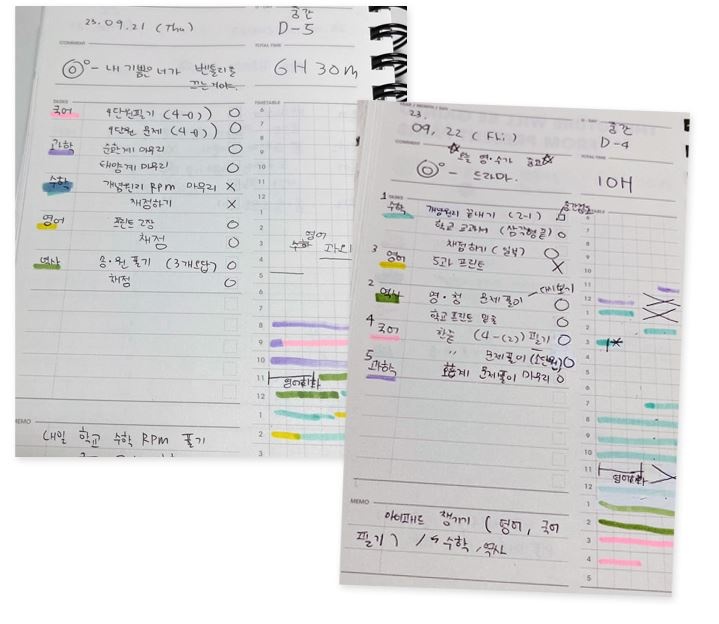 23. 09. 21 (Thu)
중간
D-5
COMMENT
TOTAL TIME
- 내 기쁨은 너가 벤틀리를
끄는거야.
6H 30m
TASKS
TIMETABLE
국어 4단원필기 (4-(1)) O
4단원 문제 (4-(1)) O
과학 순환계 마무리 O
태양계 마무리 O
수학 개념원리 RPM 마무리 X
채점하기 X
영어 프린트 2장 O
채점 O
역사 송·원 필기 (3개 소단) O
채점 O
6
7
8
9
10
11
12
1
2
3
4
5
6
7
8
9
10
11
12
1
2
영어
수학
영어
MEMO
내일 학교 수학 RPM 풀기
YEAR / MONTH / DAY
D-DAY
23.
09. 22 (Fri)
중간
D-4
COMMENT
TOTAL TIME
☆오늘 영·수가 중요☆
- 드라마.
10H
TASKS
1 수학 개념원리 끝내기 (2-1)
학교 교과서 (삼각형 끝) O
채점하기 (일부) O
3 영어 5과 프린트 X
2 역사 명·청 문제풀이 O
학교 프린트 O
4 국어 한끝 (4-(2)) 필기 O
" 문제풀이 (소단원) O
5 과학 호흡계 문제풀이 마무리 O
11
12
1
2
3
4
5
6
7
8
9
10
11
12
1
2
3
4
5
영어
MEMO
아이패드 챙기기 (영어, 국어
필기) / 수학, 역사